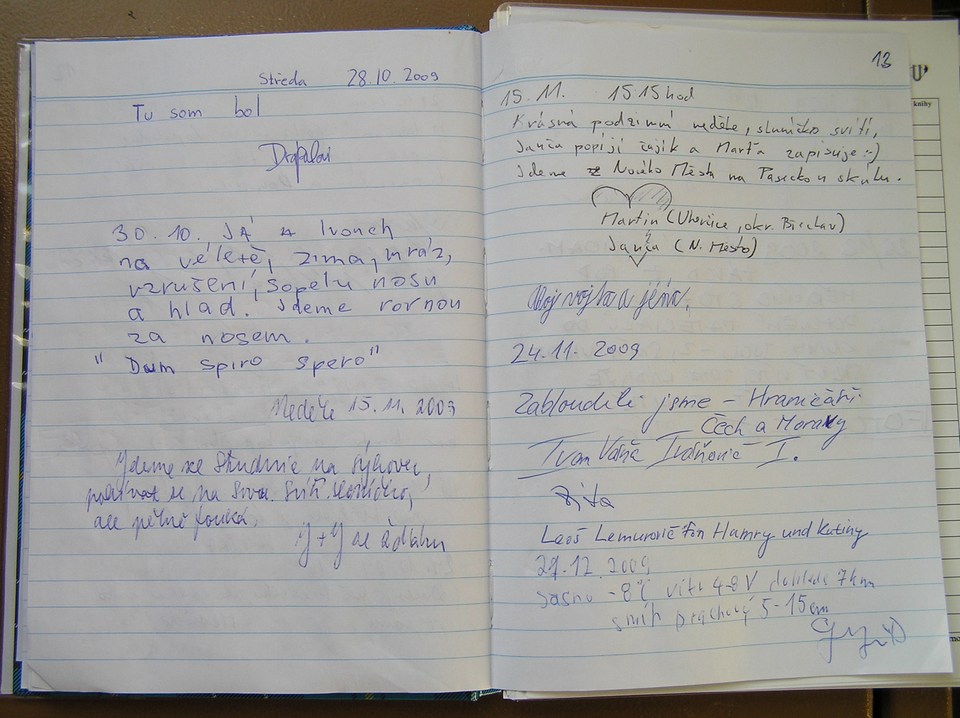 Středa 28.10.2009
Tu som bol
30.10., JÁ a Ivonch
na výletě, zima, mráz,
vzrušení, sopelu nosu
a hlad. Jdeme rovnou
za nosem.
"Dum spiro spero"
Neděle 15.11.2009
Jdeme ze Studnic na
podívat se na Svítí sluníčko,
ale pěkně fouká.
J+J ze Žďáru
13
15.11. 15 15 hod
Krásná podzimní neděle, sluníčko svítí,
Janča popíjí čajík a Marťa zapisuje :-)
Jdeme z Nového Města na Paseckou skálu.
Martin (Uherčice, okr. Břeclav)
Janča (N. Město)
vojta a jéňa.
24.11. 2009
Zabloudili jsme - Hraničáři
Čech a Moravy
Ivan Váňa Iváňovič I.
Zita
Leoš Lemurovič Fon Hamry und Kutiny
27.12.2009
Jasno -8°C vítr 4-8 V dohled 7km
sníh prachový 5-15cm